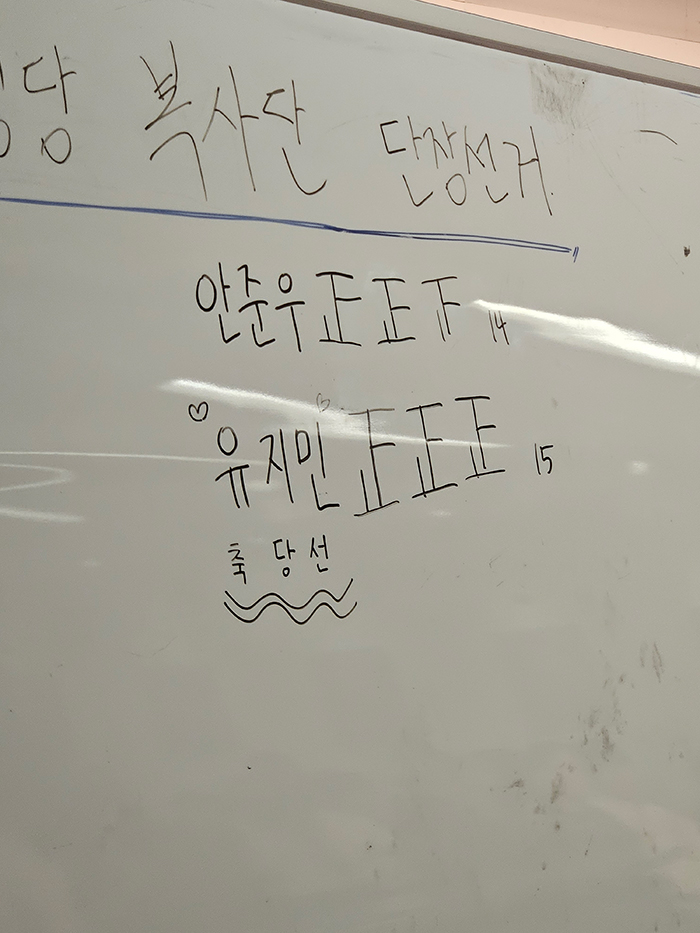 당 복사단 단장선거
안준우 正 正 下 14
유지민 正 正 正 15
축 당선